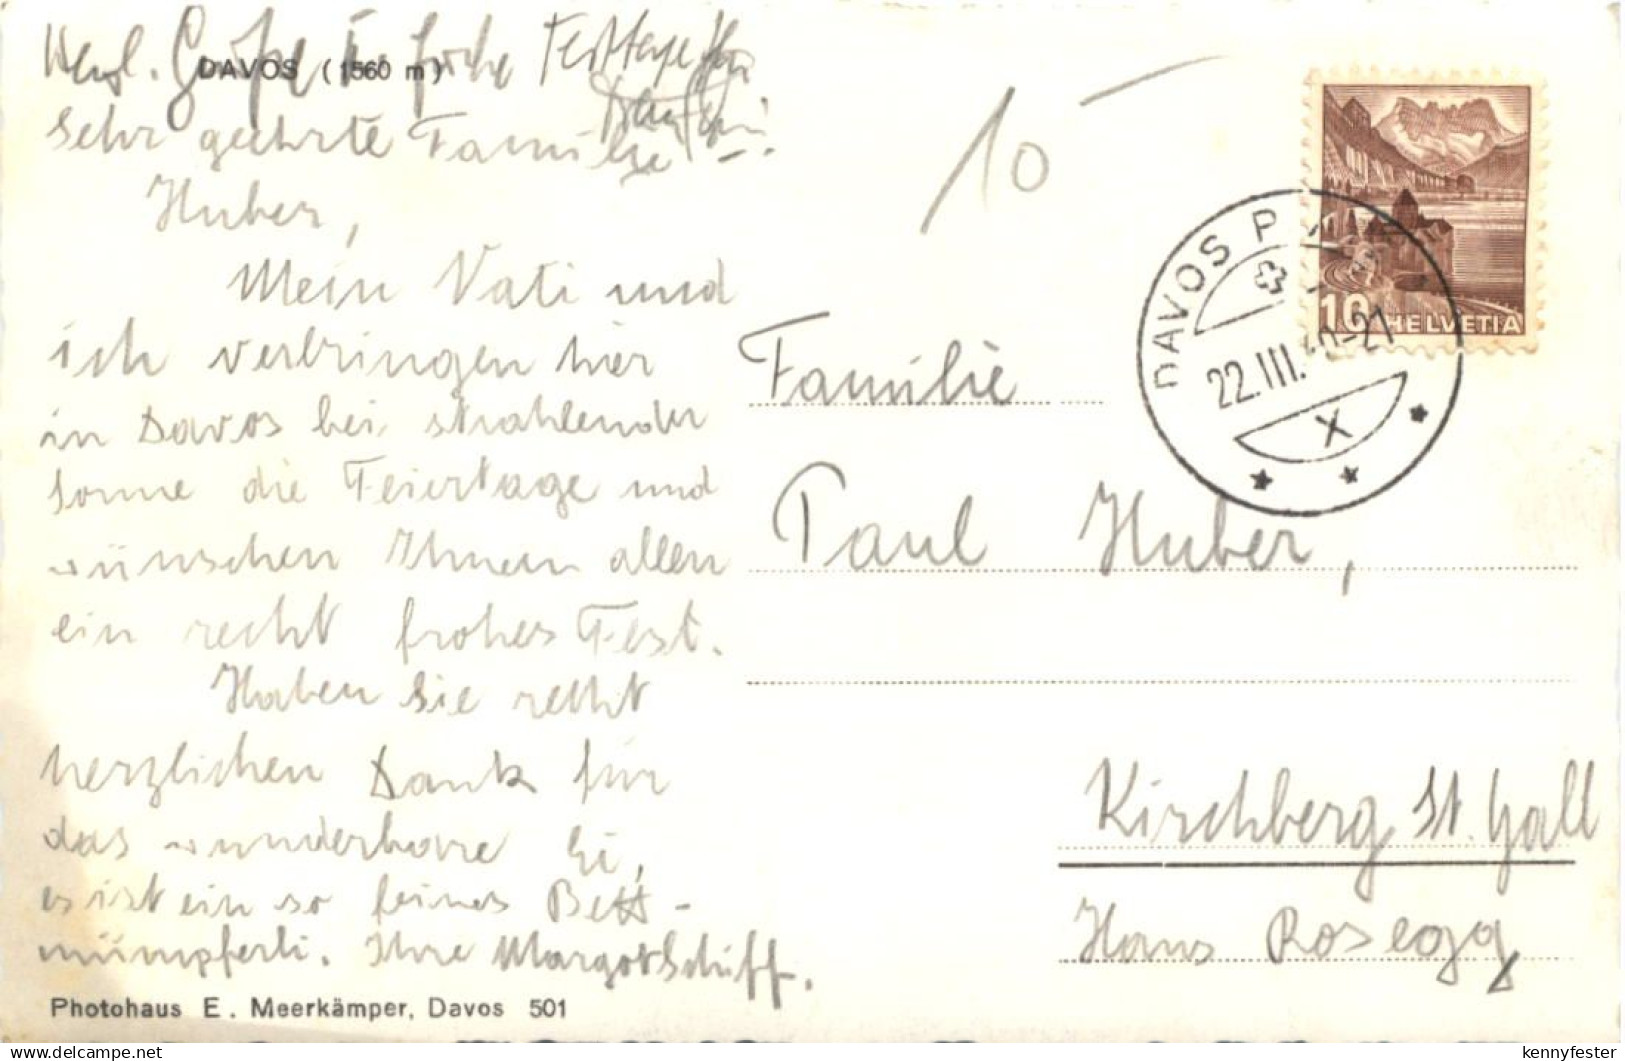 Herzl. Grüße u. frohe Festtage Ihr
DAVOS (1560 m)
Sehr geehrte Familie
Huber,
Mein Vati und
ich verbringen hier
in Davos bei strahlender
Sonne die Feiertage und
wünschen Ihnen allen
ein recht frohes Fest.
Haben Sie recht
herzlichen Dank für
das wunderbare Ei,
es ist ein so feines Bett-
mümpferli. Ihre Margot Schiff.
Photohaus E. Meerkämper, Davos 501
10
HELVETIA
10
DAVOS PLATZ
22.III.40-21
X
Familie
Paul Huber,
Kirchberg St. Gall
Haus Rosegg
kennyfester